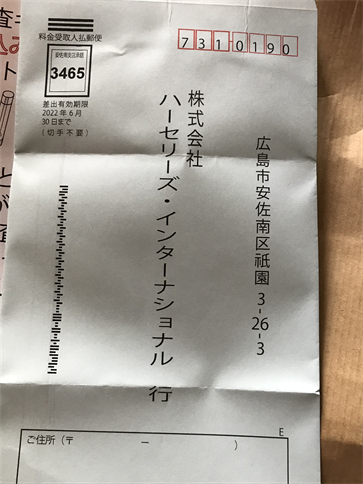 料金受取人払郵便
安佐南支店承認
3465
差出有効期限
2022年6月
30日まで
(切手不要)
7310190
広島市安佐南区祇園3-26-3
株式会社
ハーセリーズ・インターナショナル 行
E
ご住所(〒 ー )